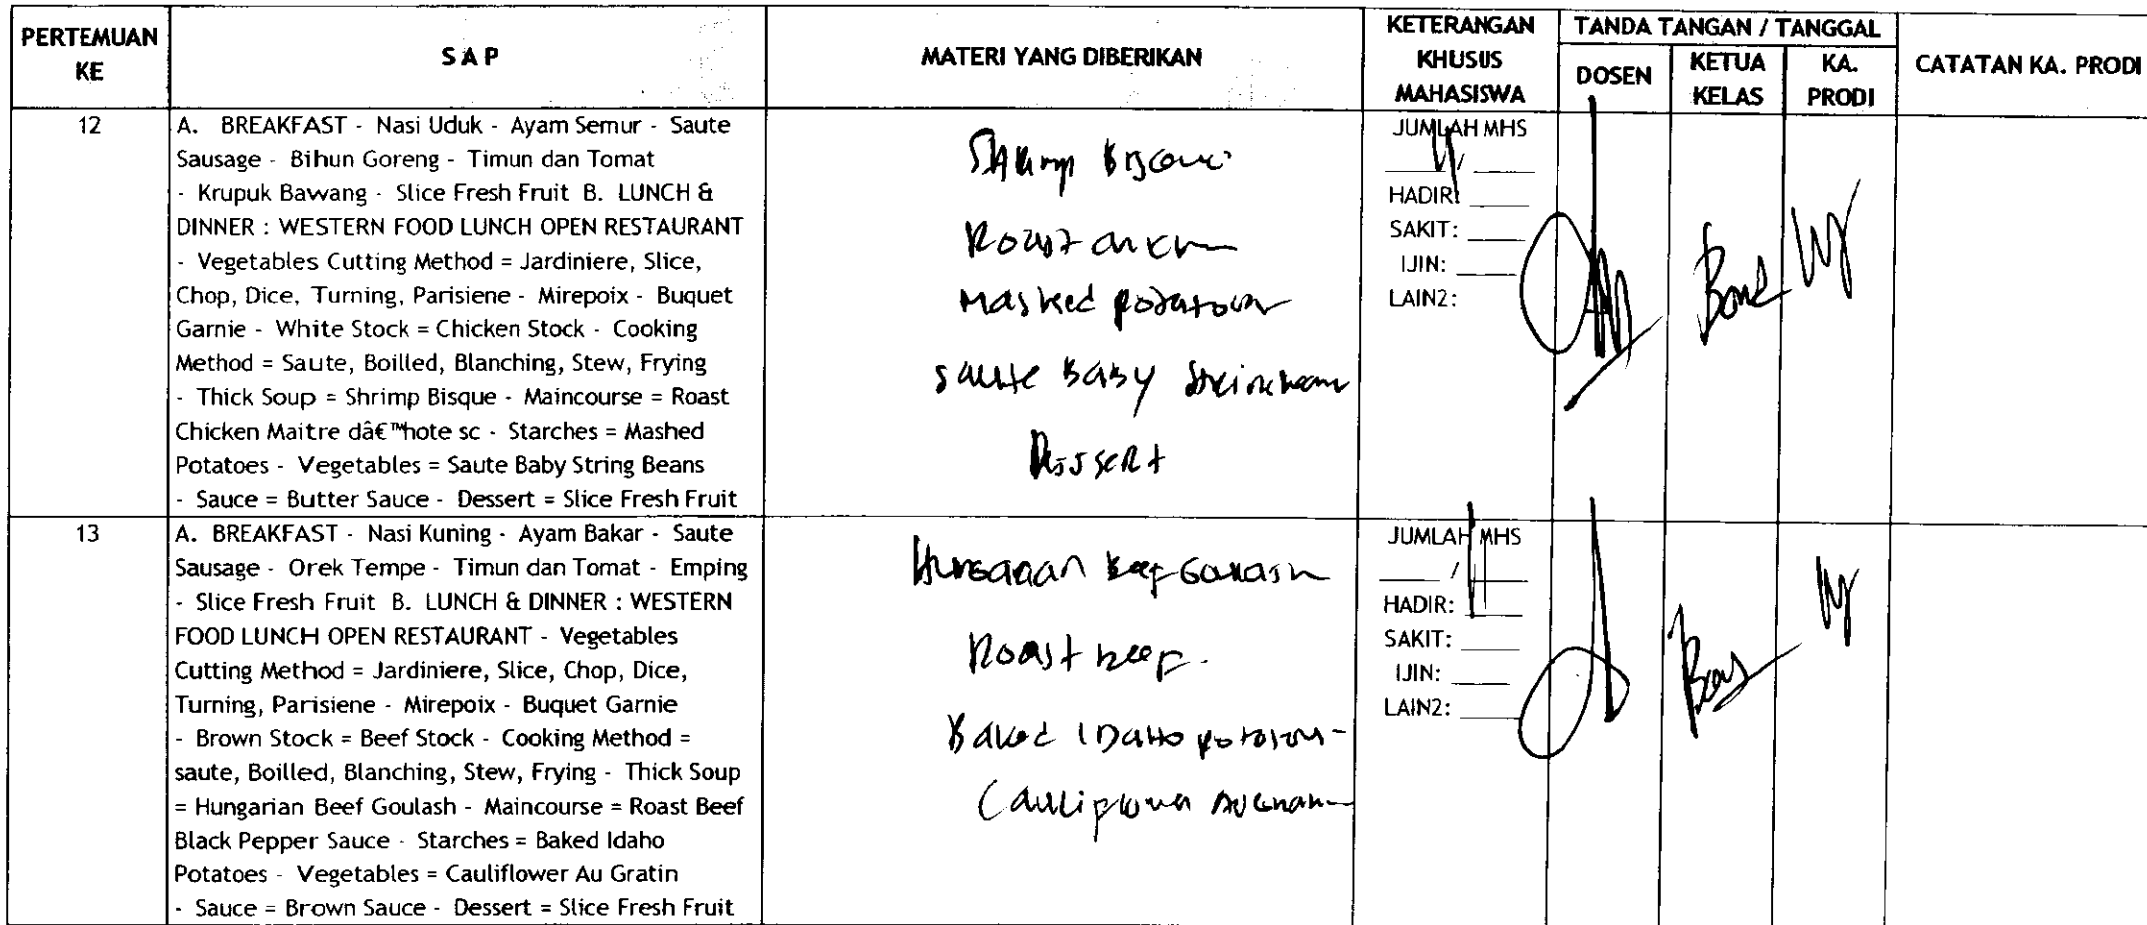 PERTEMUAN KE
S A P
MATERI YANG DIBERIKAN
KETERANGAN KHUSUS MAHASISWA
TANDA TANGAN / TANGGAL
DOSEN
KETUA KELAS
KA. PRODI
CATATAN KA. PRODI
12
A. BREAKFAST - Nasi Uduk - Ayam Semur - Saute
Sausage - Bihun Goreng - Timun dan Tomat
- Krupuk Bawang - Slice Fresh Fruit B. LUNCH &
DINNER : WESTERN FOOD LUNCH OPEN RESTAURANT
- Vegetables Cutting Method = Jardiniere, Slice,
Chop, Dice, Turning, Parisiene - Mirepoix - Buquet
Garnie - White Stock = Chicken Stock - Cooking
Method = Saute, Boilled, Blanching, Stew, Frying
- Thick Soup = Shrimp Bisque - Maincourse = Roast
Chicken Maitre dâ€™hote sc - Starches = Mashed
Potatoes - Vegetables = Saute Baby String Beans
- Sauce = Butter Sauce - Dessert = Slice Fresh Fruit
Shrimp
Roast
Mashed
saute Baby
Dessert
JUMLAH MHS
/
HADIR:
SAKIT:
IJIN:
LAIN2:
13
A. BREAKFAST - Nasi Kuning - Ayam Bakar - Saute
Sausage - Orek Tempe - Timun dan Tomat - Emping
- Slice Fresh Fruit B. LUNCH & DINNER : WESTERN
FOOD LUNCH OPEN RESTAURANT - Vegetables
Cutting Method = Jardiniere, Slice, Chop, Dice,
Turning, Parisiene - Mirepoix - Buquet Garnie
- Brown Stock = Beef Stock - Cooking Method =
saute, Boilled, Blanching, Stew, Frying - Thick Soup
= Hungarian Beef Goulash - Maincourse = Roast Beef
Black Pepper Sauce - Starches = Baked Idaho
Potatoes - Vegetables = Cauliflower Au Gratin
- Sauce = Brown Sauce - Dessert = Slice Fresh Fruit
Hungarian Beef Goulash
Roast Beef
Baked Idaho
Cauliflower
JUMLAH MHS
/
HADIR:
SAKIT:
IJIN:
LAIN2: